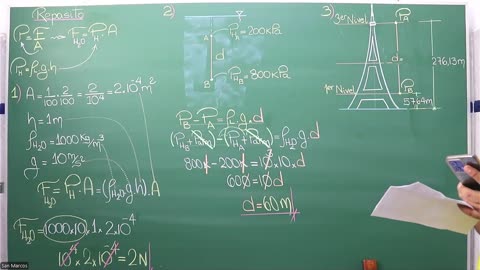 Repasito
P = F/A → F_H₂O = P_H · A
P_H = ρ · g · h
1) A = 1/100 · 2/100 = 2/10⁴ = 2·10⁻⁴ m²
h = 1m
ρ_H₂O = 1000 kg/m³
g = 10 m/s²
F_H₂O = P_H · A = (ρ_H₂O g h) · A
F_H₂O = (1000)(10)(1)x2x10⁻⁴
10⁴ x 2 x 10⁻⁴ = 2N
2)
A P_HA = 200KPa
d
B P_HB = 800KPa
P_B - P_A = ρ · g · d
(P_HB + Patm) - (P_HA + Patm) = ρ_H₂O g d
800K - 200K = 10³ · 10 · d
600 = 10 d
d = 60m
3)
3er Nivel
P_A
d
276,13m
1er Nivel
P_B
57,64m
San Marcos